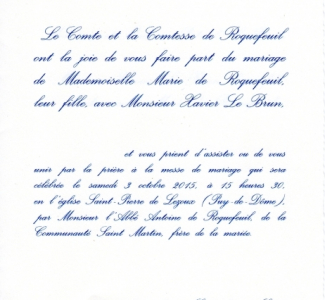 Le Comte et la Comtesse de Roquefeuil
ont la joie de vous faire part du mariage
de Mademoiselle Marie de Roquefeuil,
leur fille, avec Monsieur Xavier Le Brun,
et vous prient d'assister ou de vous
unir par la prière à la messe de mariage qui sera
célébrée le samedi 3 octobre 2015, à 15 heures 30,
en l'église Saint-Pierre de Lezoux (Puy-de-Dôme),
par Monsieur l'Abbé Antoine de Roquefeuil, de la
Communauté Saint Martin, frère de la mariée.